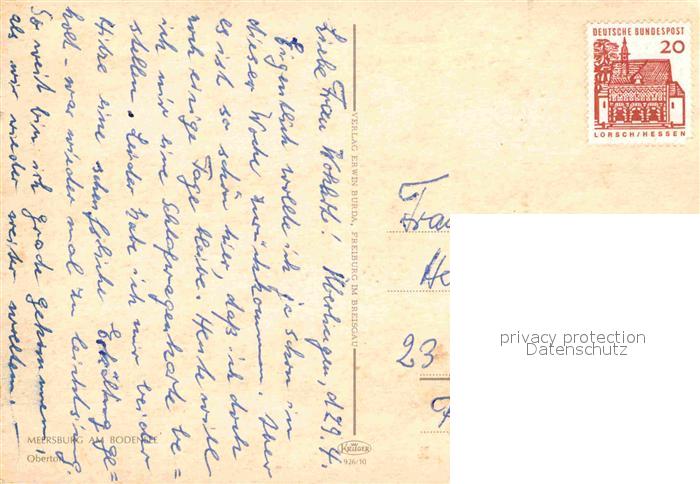 Liebe Frau Wohlotti! Überlingen, d 29.7.
Eigentlich wollte ich ja schon in
dieser Woche zurückkommen. Aber
es ist so schön hier, daß ich doch
noch einige Tage bleibe. Heute will
ich mir eine Schlafwagenkarte be=
stellen. Leider habe ich mir bei der
Hitze eine scheußliche Erkältung ge=
holt – war wieder mal zu leichtsinnig.
So weit bin ich grade gekommen,
als wir wieder weiter wollen. –
MEERSBURG AM BODENSEE
Obertor
VERLAG ERWIN BURDA, FREIBURG IM BREISGAU
KRÜGER
926/10
DEUTSCHE BUNDESPOST
20
LORSCH/HESSEN
Frau
He
23
privacy protection
Datenschutz